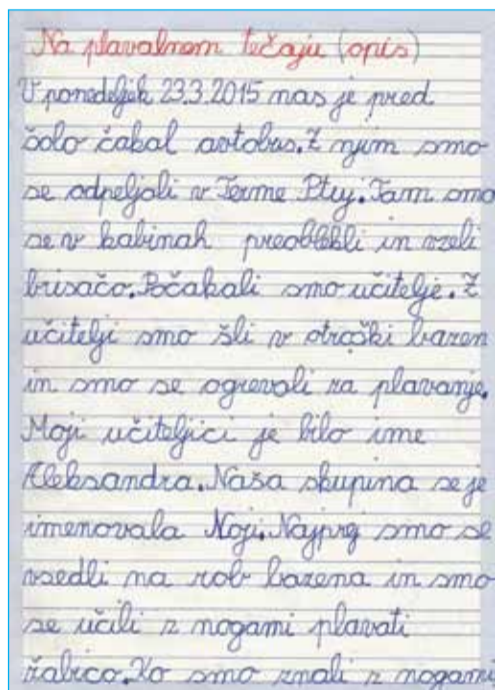 Na plavalnem tečaju (opis)
V ponedeljek 23.3.2015 nas je pred
šolo čakal avtobus. Z njim smo
se odpeljali v Terme Ptuj. Tam smo
se v kabinah preoblekli in vzeli
brisačo. Počakali smo učitelje. Z
učitelji smo šli v otroški bazen
in smo se ogrevali za plavanje.
Moji učiteljici je bilo ime
Aleksandra. Naša skupina se je
imenovala Noji. Najprej smo se
vsedli na rob bazena in smo
se učili z nogami plavati
žabico. Ko smo znali z nogami